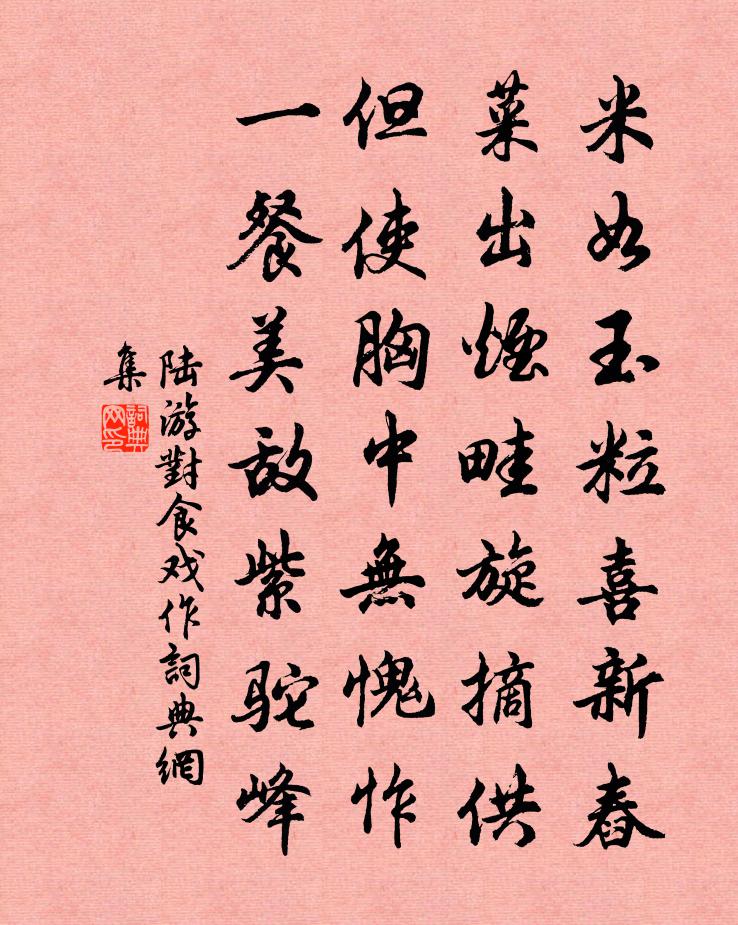 米如玉粒喜新舂
菜出煙畦旋摘供
但使胸中無愧怍
一餐美敵紫駝峰
陸游對食戏作詞典網
集
詞典网印